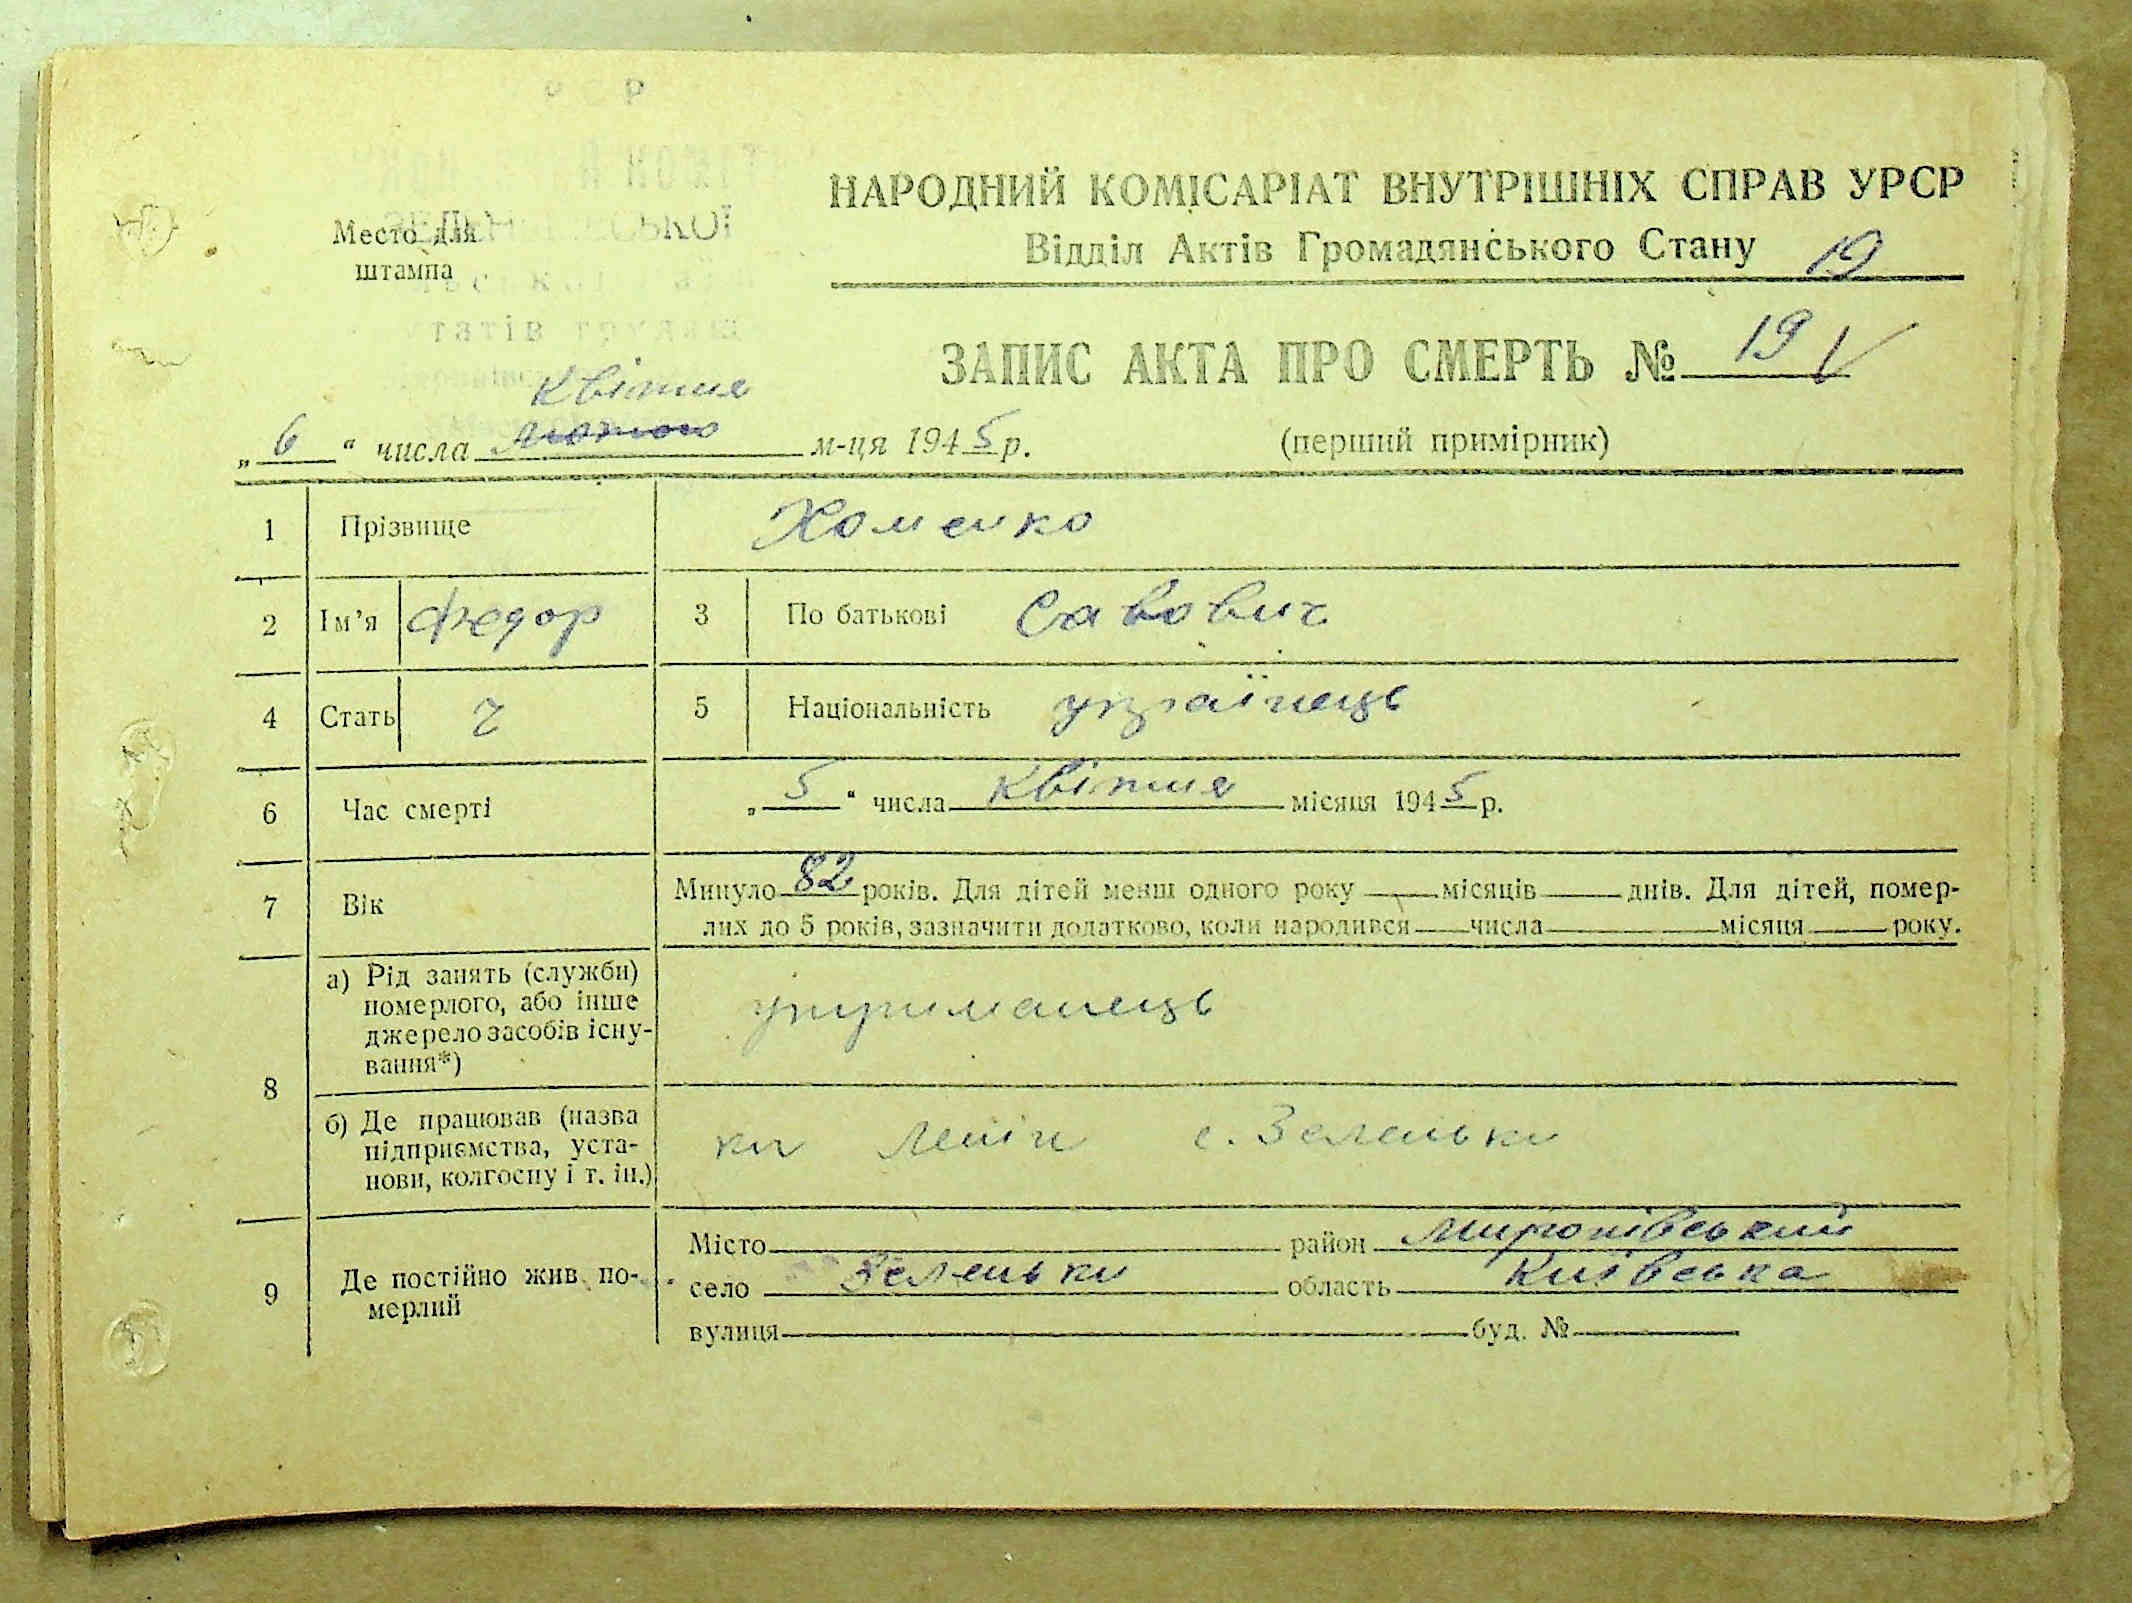 Р
НАРОДНИЙ КОМІСАРІАТ ВНУТРІШНІХ СПРАВ УРСР
Место для
штампа
Відділ Актів Громадянського Стану 19
татів трудящ
ЗАПИС АКТА ПРО СМЕРТЬ № 19 V
квітня
„ 6 “ числа лютого м-ця 1945 р.
(перший примірник)
1 Прізвище Хоменко
2 Ім’я Федор 3 По батькові Савович
4 Стать ч 5 Національність українець
6 Час смерті „ 5 “ числа квітня місяця 1945 р.
7 Вік Минуло 82 років. Для дітей менш одного року місяців днів. Для дітей, помер-
лих до 5 років, зазначити додатково, коли народився числа місяця року.
8 а) Рід занять (служби)
померлого, або інше
джерело засобів існу-
вання*)
утриманець
б) Де працював (назва
підприємства, уста-
нови, колгоспу і т. ін.)
к-п Леніп с. Зеленьки
9 Де постійно жив по-
мерлий
Місто район Миронівський
село Зеленьки область Київська
вулиця буд. №